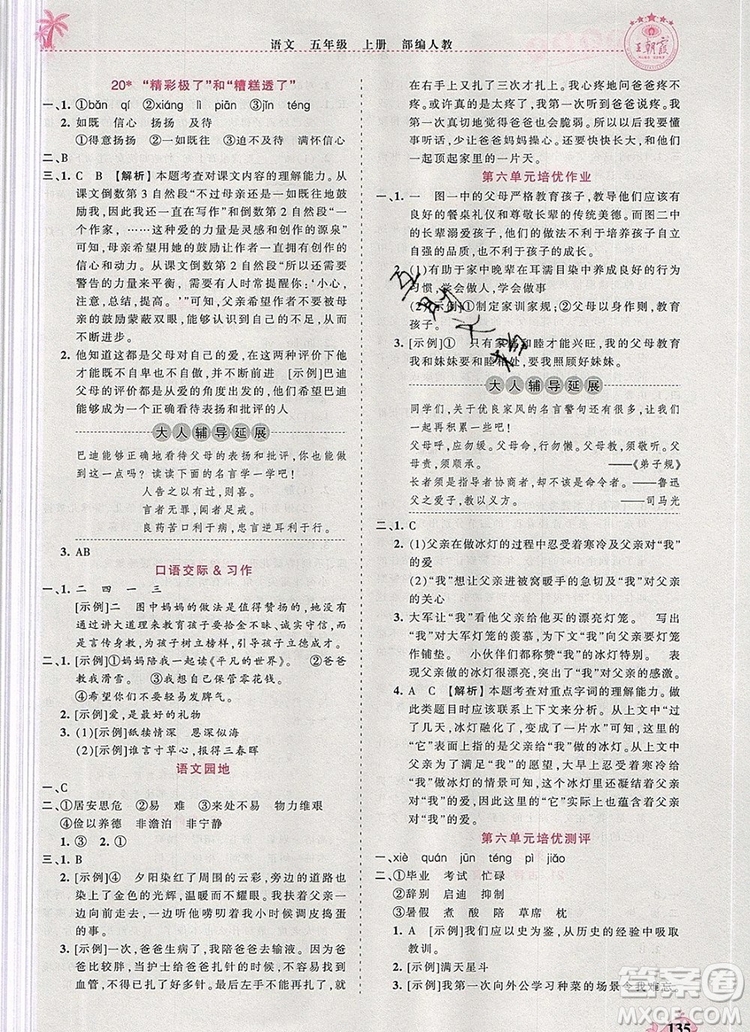 语文 五年级 上册 部编人教
王朝霞
20* “精彩极了”和“糟糕透了”
一、1. ①bǎn qí ②xiáng lì piān ③jīn téng
2. 如既 信心 扬扬 及待
①得意扬扬 ②一如既往 ③迫不及待 满怀信心
二、B
三、1. C B 【解析】本题考查对课文内容的理解能力。从
课文倒数第 3 自然段“不过母亲还是一直鼓励
我。因此我还一直在写作”和倒数第 2 自然段“一
个作家，……这种爱的力量是灵感和创作的源泉”
可知，母亲希望用她的鼓励让作者一直拥有创作的
灵感和力量。从课文倒数第 2 自然段“还需要有
警告的力量来平衡，需要有人时常提醒你：‘小心，
注意，总结，提高。’”可知，父亲希望作者不要被母
亲的鼓励蒙蔽双眼，取得更大的成就。
2. 他知道这是父母对自己的爱，在这两种评价下他才
能不断进步，直至获得成功。 [示例]巴迪
父母的评价都是从爱的角度出发的，希望巴迪
能正确看待表扬和批评的人
大人辅导延展
巴迪能正确地看待父母的表扬和批评，你能做
到这一点吗？ 读读下面的名言学一学吧！
人告之以有过，则喜。
言者无罪，闻者足戒。
良药苦口利于病，忠言逆耳利于行。
3. AB
口语交际 & 习作
一、1. 二 四 一 三
2. [示例]二 图中妈妈的做法是值得赞扬的，她
通过讲大道理来教育孩子要拾金不昧，以诚实守信的
言行言传身教，为孩子树立榜样，让孩子立德成才。
二、1. [示例]①妈妈陪我一起读《平凡的世界》。 ②爸爸
教我滑雪。 ③爸爸，我想自己保管零花钱。
④希望你们不要轻易发脾气。
2. [示例]爱，是最好的给予
3. (1)[示例]舐犊情深 恩深似海
(2)[示例]谁言寸草心，报得三春晖。
语文园地
一、C
二、①居安思危 ②易 难 ③来之不易 物力维艰
④俭以养德 非澹泊 非宁静
1. ③ 2. ①
三、B
四、1. ② [示例]④ 夕阳染红了周围的云彩，旁边的道路也
染上了金色的光辉，温暖而又耀眼。
2. [示例]全班顿时鸦雀无声，就连那几个调皮捣蛋
的孩子都沉浸在了故事里。
3. [示例]一次，爸爸生病了，我陪爸爸去输液。一开始
他满脸骄傲地跟我说，打针一点儿都不可怕，还冲我
摆出胜利的手势。当护士给爸爸扎针时，爸爸的脸都
白了，而且还不停地打哆嗦。因为这次扎针爸爸
在右手上扎了三次才扎上。我问爸爸疼不
疼，爸爸说太疼了。我第一次听到爸爸喊疼，
爸爸原来也会脆弱。所以以后我要好好
懂事听话，少让爸爸妈妈操心。我要努力为
他们撑起家里的一片天。
第六单元培优作业
一、1. 一 图一中的父母严格教育孩子，教导他们应该有
良好的餐桌礼仪和尊敬长辈的传统美德。而图二中
的长辈溺爱孩子，包办一切，不利于培养孩子自立
自强的品质，也不利于孩子的成长。
2. (1)有助于家中晚辈在耳濡目染中养成良好的行为
习惯，学会做人，学会做事
(2)[示例]①制定家训家规；②父母以身作则，教育
孩子。
(3)[示例]① 只有家庭和睦才能兴旺，我的父母教育
我和妹妹要和睦相处，还要求我照顾好妹妹。
大人辅导延展
同学们，关于优良家风的名言警句还有很多，让我们一
起再积累一些吧！
父母呼，应勿缓。父母命，行勿懒。父母教，须敬听。父
母责，须顺承。 ——《弟子规》
长者须是指导者协商者，却不该是命令者。——鲁迅
父之爱子，教以义方。 ——司马光
二、1. C
2. (1)父亲在做冰灯的过程中忍受着寒冷及父亲对“我”
的爱
(2)“我”想让父亲进被窝暖手的急切及“我”对父亲
的关心
3. 大军让“我”看他父亲给他买的漂亮灯笼。 写出了
“我”对大军灯笼的羡慕，为下文父亲给“我”做冰灯笼
作铺垫。 小伙伴们都称赞“我”的冰灯特别。 表
现父亲做的冰灯很漂亮，突出父亲对“我”的爱。
4. A C 【解析】本题考查对重点字词的理解能力。从
这类题目时应该联系上下文来分析。从上文中“过
了几天，冰灯融化了，变成了一片水”可以知道，“
它”代指父亲做的冰灯，“它”代表了父亲为了满
足“我”的愿望，努力给“我”做冰灯。从上文中“父
亲给‘我’做冰灯的情景可知，这个冰灯包含着父亲
对“我”的爱，所以“它”实际上也是蕴含了父亲对
“我”的爱。
第六单元培优测评
一、xiè quán jūn téng pì jiǎo
二、①毕业 考试 忙碌
②辞别 启迪 抑制
③暑假 煮 酸 陪 草席 枕
三、1. A [示例]我们要以史为鉴，从历史的经验中吸收
教训。
2. [示例]满天星斗
3. [示例]我第一次向外公学习种菜的场景令我难忘。
答案圈
135